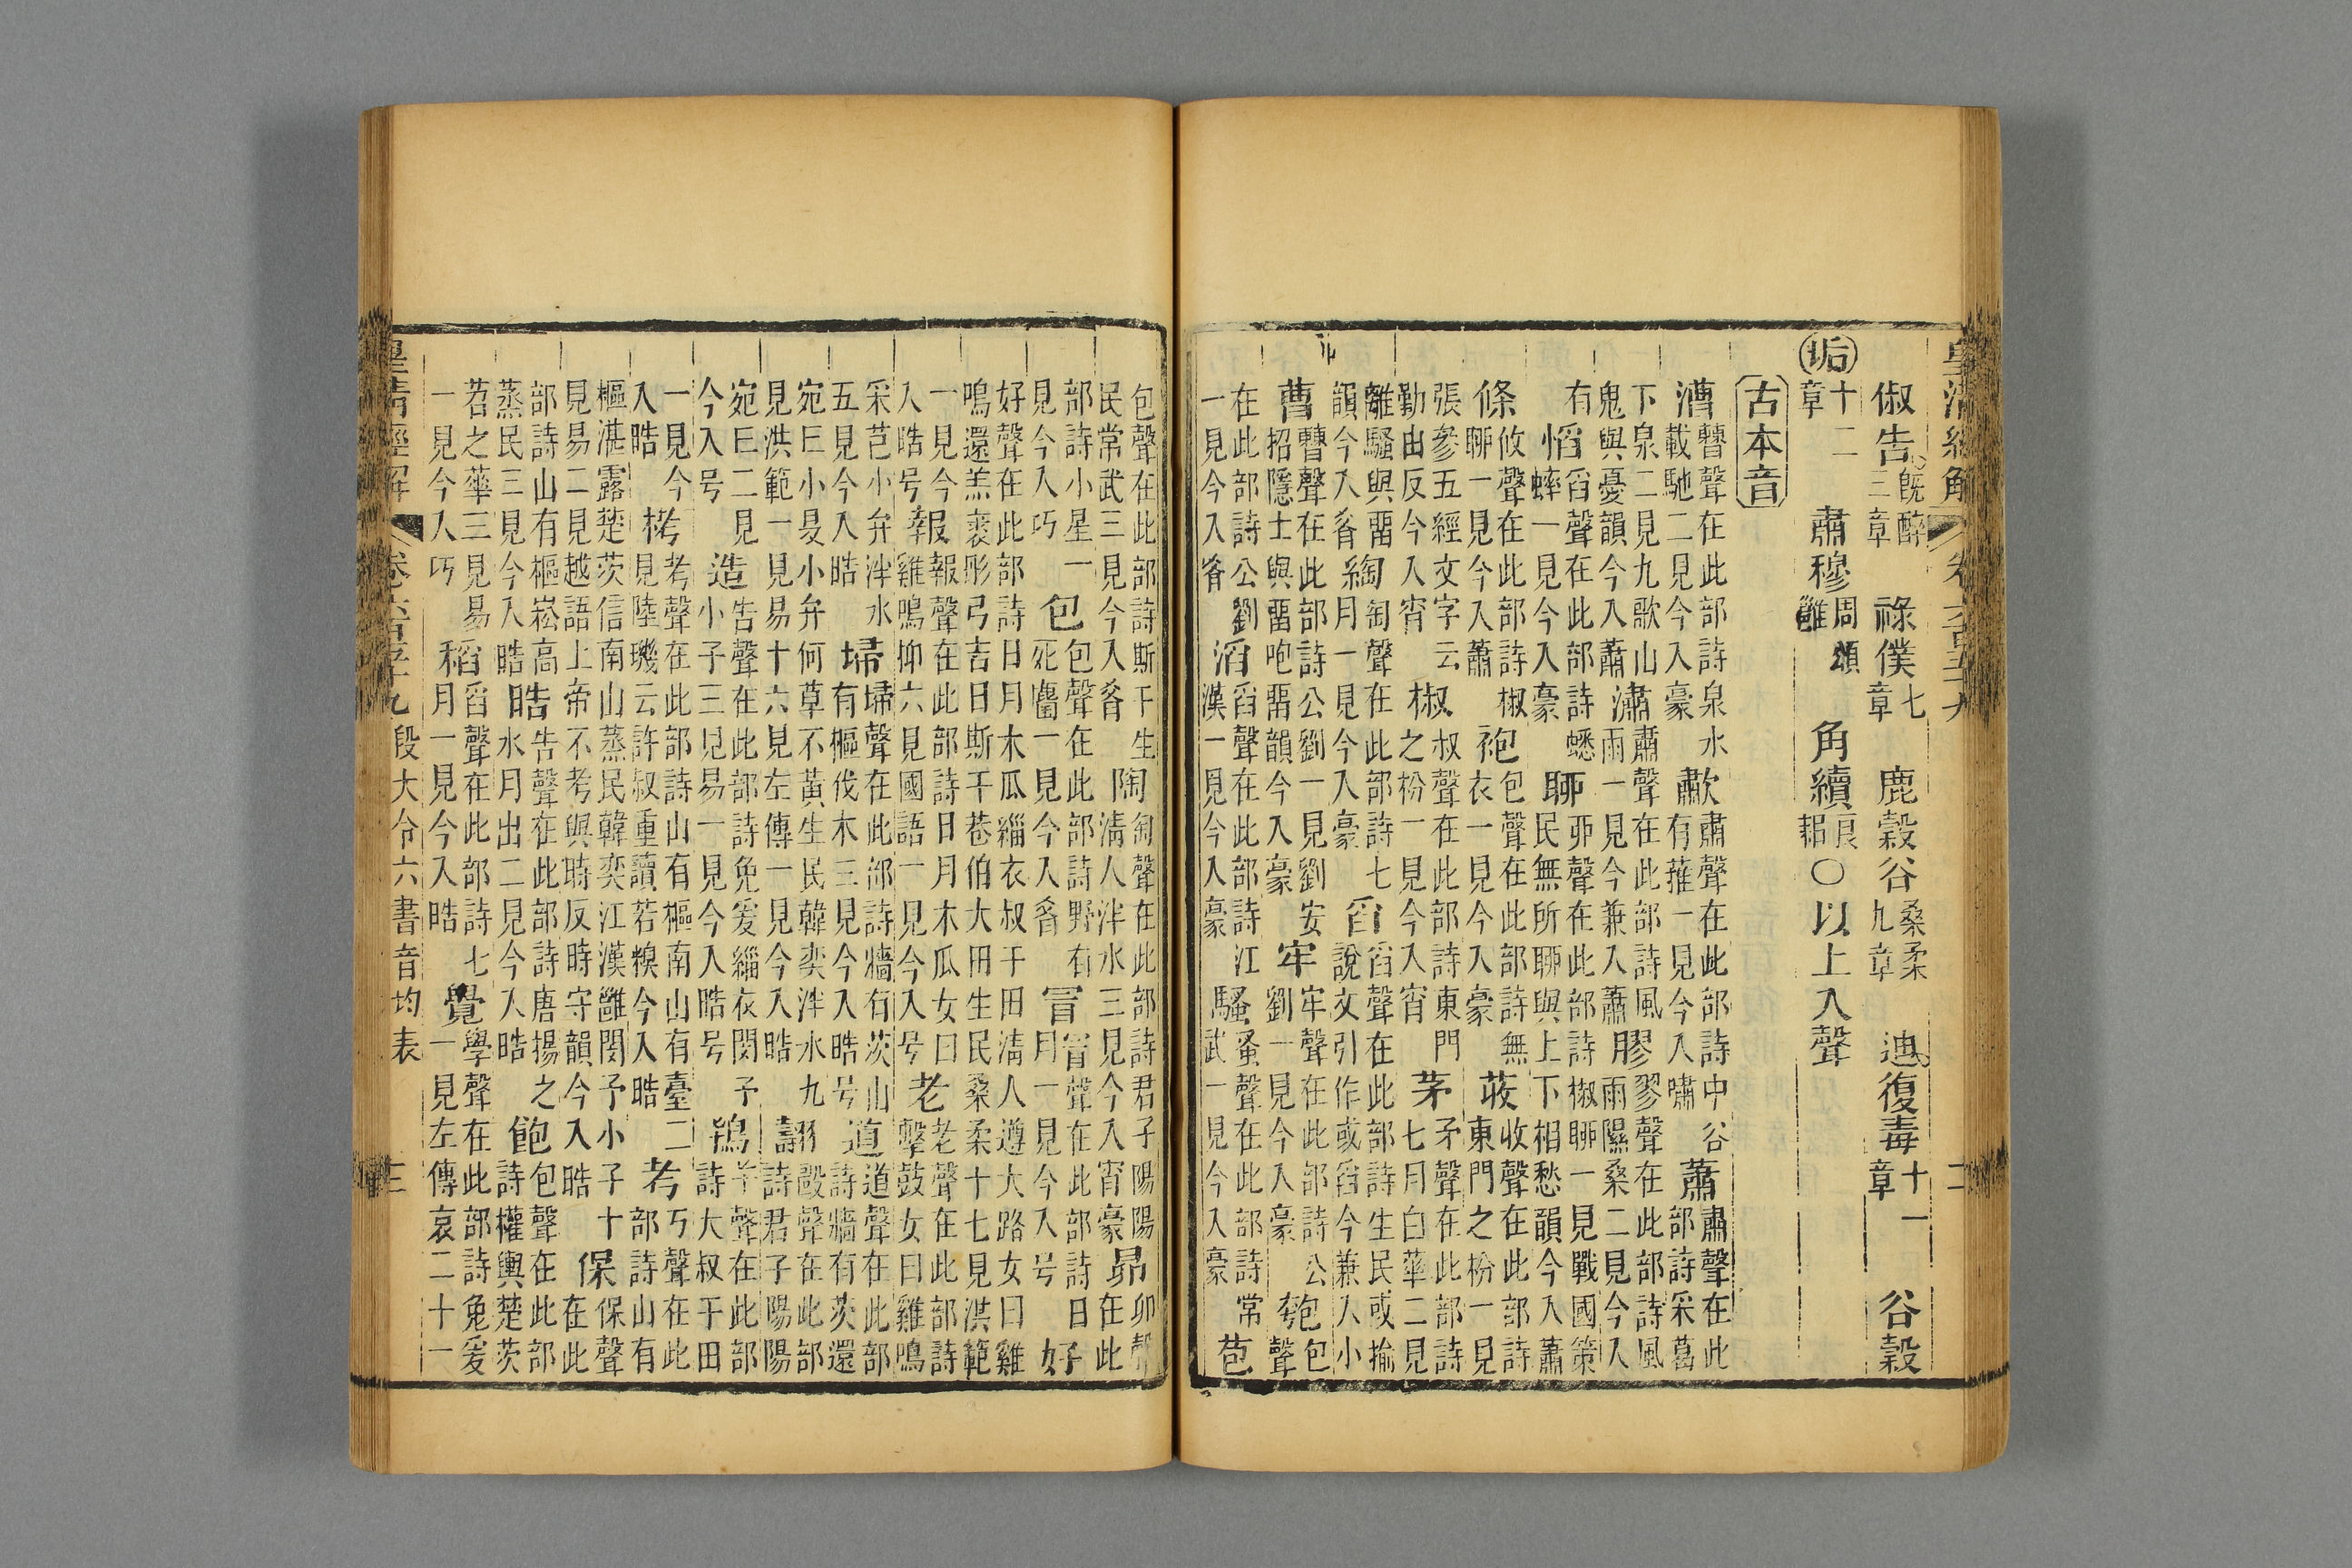 俶告既醉三章　祿僕七章　鹿穀谷桑柔九章　迪復毒十一章　谷穀
垢十二章　肅穆周頌雝　角續良耜〇以上入聲
古本音
漕𣍘聲在此部詩泉水載馳二見今入豪　歗肅聲在此部詩中谷有蓷一見今入嘯　蕭肅聲在此部詩采葛
下泉二見九歌山鬼與憂韻今入蕭　瀟肅聲在此部詩風雨一見今兼入蕭　膠翏聲在此部詩風雨隰桑二見今入
有　慆舀聲在此部詩蟋蟀一見今入豪　聊丣聲在此部詩椒聊一見戰國策民無所聊與上下相愁韻今入蕭
條攸聲在此部詩椒聊一見今入蕭　袍包聲在此部詩無衣一見今入豪　荍收聲在此部詩東門之枌一見
張參五經文字云勤由反今入宵　椒叔聲在此部詩東門之枌一見今入宵　茅矛聲在此部詩七月白華二見
離騷與畱韻今入肴　綯匋聲在此部詩七月一見今入豪　舀舀聲在此部詩生民或揄說文引作或舀今兼入小
曹𣍘聲在此部詩公劉一見劉安招隱士與畱咆畱韻今入豪　牢牢聲在此部詩公劉一見今入豪　匏包聲
在此部詩公劉一見今入肴　滔舀聲在此部詩江漢一見今入豪　騷蚤聲在此部詩常武一見今入豪　苞
包聲在此部詩斯干生民常武三見今入肴　陶匋聲在此部詩君子陽陽清人泮水三見今入宵豪　昴卯聲在此
部詩小星一見今入巧　包包聲在此部詩野有死麕一見今入肴　冒冃聲在此部詩日月一見今入号　好
好聲在此部詩日月木瓜緇衣叔于田清人遵大路女曰雞鳴還羔裘彤弓吉日斯干巷伯大田生民桑柔十七見洪範
一見今入晧号　報報聲在此部詩日月木瓜女曰雞鳴抑六見國語一見今入号　老老聲在此部詩擊鼓女曰雞鳴
采芑小弁泮水五見今入晧　埽埽聲在此部詩牆有茨山有樞伐木三見今入晧号　道道聲在此部詩牆有茨還
宛丘小旻小弁何草不黃生民韓奕泮水九見洪範一見易十六見左傳一見今入晧　翿𣪠聲在此部詩君子陽陽
宛丘二見今入号　造告聲在此部詩兔爰緇衣閔予小子三見易一見今入晧号　鴇𠤏聲在此部詩大叔于田
一見今入晧　栲考聲在此部詩山有樞南山有臺二見陸璣云許叔重讀若糗今入晧　考丂聲在此部詩山有
樞湛露楚茨信南山蒸民韓奕江漢雝閔予小子十見易二見越語上帝不考與時反時守韻今入晧　保保聲在此
部詩山有樞崧高蒸民三見今入晧　皓告聲在此部詩唐揚之水月出二見今入晧　飽包聲在此部詩權輿楚茨
苕之華三見易一見今入巧　稻舀聲在此部詩七月一見今入晧　覺學聲在此部詩兔爰一見左傳哀二十一
段大令六書音均表